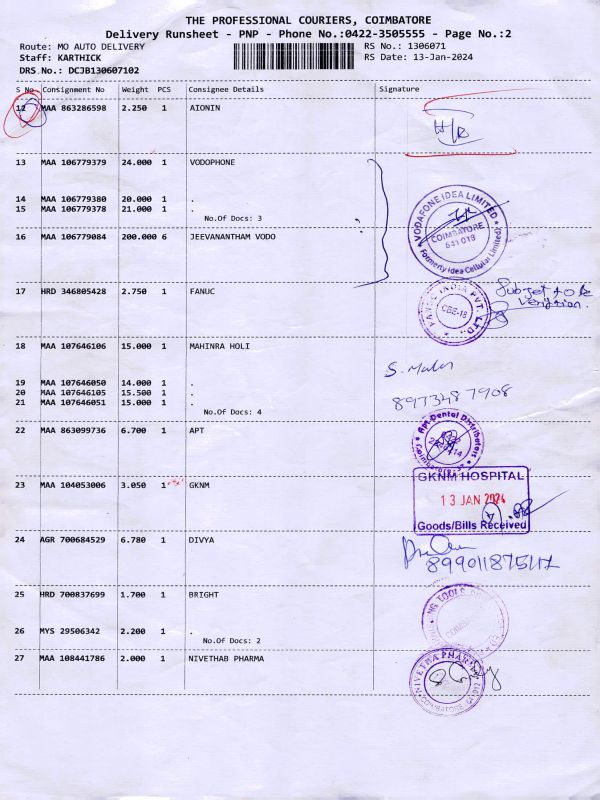 THE PROFESSIONAL COURIERS, COIMBATORE
Delivery Runsheet - PNP - Phone No.:0422-3505555 - Page No.:2
Route: MO AUTO DELIVERY RS No.: 1306071
Staff: KARTHICK RS Date: 13-Jan-2024
DRS No.: DCJB130607102
S No Consignment No Weight PCS Consignee Details Signature
12 MAA 863286598 2.250 1 AIONIN
13 MAA 106779379 24.000 1 VODOPHONE
14 MAA 106779380 20.000 1 .
15 MAA 106779378 21.000 1 .
No.Of Docs: 3
VODAFONE IDEA LIMITED
COIMBATORE
641 018
(Formerly Idea Cellular Limited)
16 MAA 106779084 200.000 6 JEEVANANTHAM VODO
17 HRD 346805428 2.750 1 FANUC
FANUC INDIA PVT. LTD.
CBE-18
Subject to be
verification.
18 MAA 107646106 15.000 1 MAHINRA HOLI
19 MAA 107646050 14.000 1 .
20 MAA 107646105 15.500 1 .
21 MAA 107646051 15.000 1 .
No.Of Docs: 4
8973487908
22 MAA 863099736 6.700 1 APT
Apt-Dental Distributors
23 MAA 104053006 3.050 1 GKNM
GKNM HOSPITAL
13 JAN 2024
Goods/Bills Received
24 AGR 700684529 6.780 1 DIVYA
25 HRD 700837699 1.700 1 BRIGHT
26 MYS 29506342 2.200 1 .
No.Of Docs: 2
27 MAA 108441786 2.000 1 NIVETHAB PHARMA
NIVETHA PHARMA